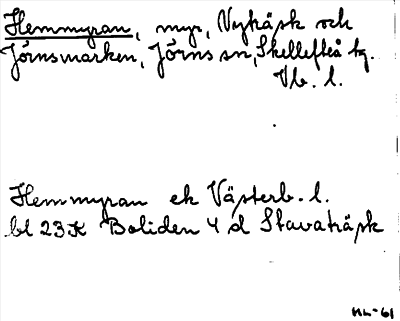 Hemmyran, myr, Nyträsk och
Jörnsmarken, Jörns sn, Skellefteå tg.
Vb. l.
Hemmyran ek Västerb. l.
bl 23 K Boliden 4 d Stavaträsk
HL-61